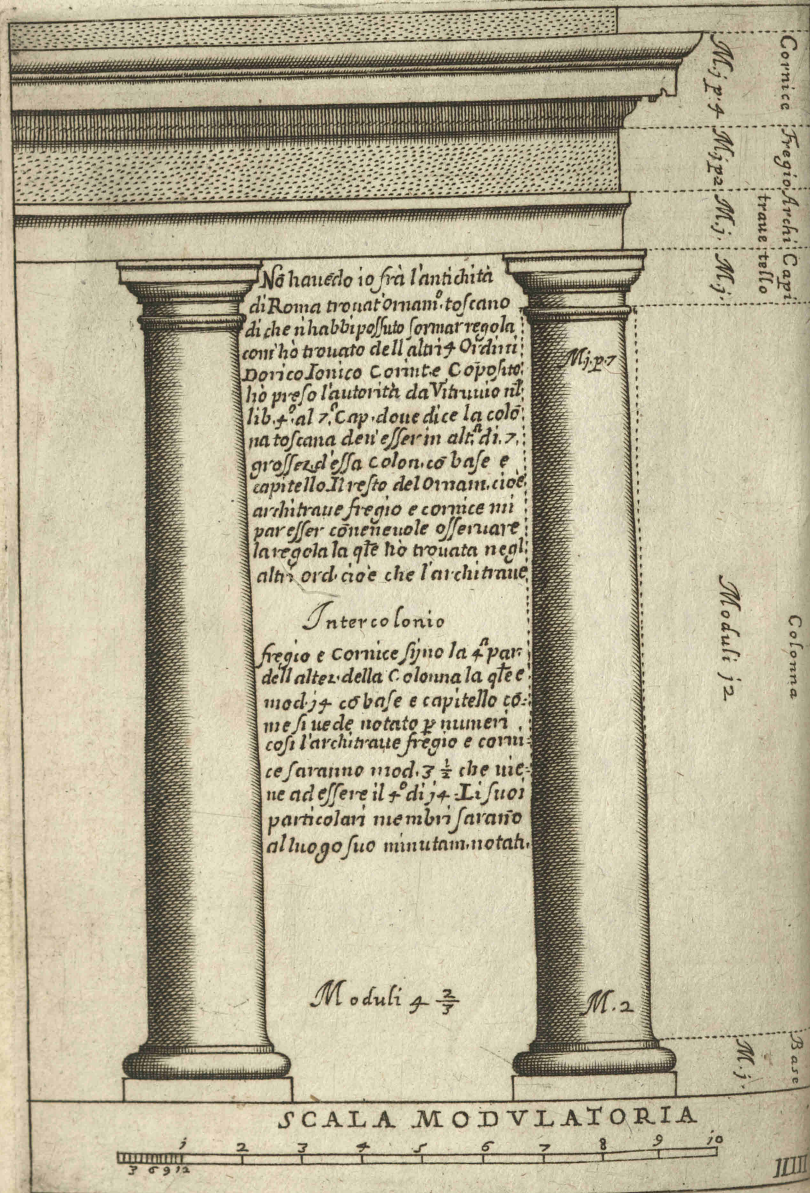 Cornice
M j p. 4
Fregio
M j p 2
Archi
traue
M j.
Capi
tello
M j.
Nō hauēdo io frà l'antichità
di Roma trouat'Ornam.º toscano
di che n'habbi possuto formar regola
com'hò trouato dell altri 4 Ordini
Dorico Ionico Corint.e Cōposito
hò preso l'autorità da Vitruuio nel
lib. 4.º al 7.º Cap. doue dice la colō
na toscana deu'esser in alt.ª di. 7.
grossez.d'essa Colon. cō base e
capitello. Il resto del Ornam. cioè
architraue fregio e cornice mi
par esser cōueneuole osseruare
la regola la qłe hò trouata negl
altri ord. cioè che l'architraue
Intercolonio
fregio e Cornice sijno la 4.ª par
dell altez. della Colonna la qłe è
mod. j4 cō base e capitello co-
me si uede notato p numeri,
cosi l'architraue fregio e corni-
ce saranno mod. 3 ½ che uie-
ne ad essere il 4.º di j4. Li suoi
particolari membri sarāno
al luogo suo minutam. notati.
M j. p. 7
Colonna
Moduli j2
Moduli 4 2/3
M. 2
Base
M. j.
SCALA MODVLATORIA
j 2 3 4 5 6 7 8 9 10
3 6 9 12
IIII